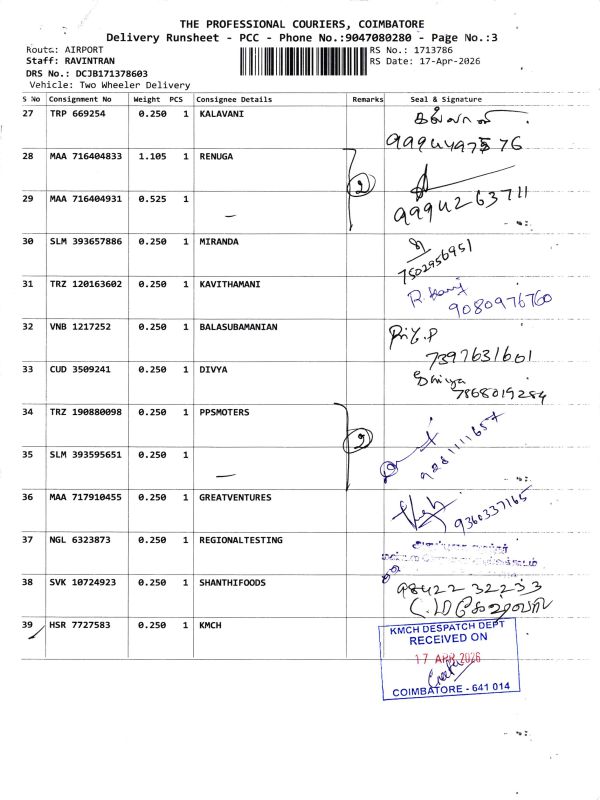 THE PROFESSIONAL COURIERS, COIMBATORE
Delivery Runsheet - PCC - Phone No.:9047080280 - Page No.:3
Route: AIRPORT RS No.: 1713786
Staff: RAVINTRAN RS Date: 17-Apr-2026
DRS No.: DCJB171378603
Vehicle: Two Wheeler Delivery
S No Consignment No Weight PCS Consignee Details Remarks Seal & Signature
27 TRP 669254 0.250 1 KALAVANI
28 MAA 716404833 1.105 1 RENUGA 2
29 MAA 716404931 0.525 1 — 9994263711
30 SLM 393657886 0.250 1 MIRANDA
7502956951
31 TRZ 120163602 0.250 1 KAVITHAMANI
9080976760
32 VNB 1217252 0.250 1 BALASUBAMANIAN
7397631601
33 CUD 3509241 0.250 1 DIVYA
7868019284
34 TRZ 190880098 0.250 1 PPSMOTERS 2
35 SLM 393595651 0.250 1 —
36 MAA 717910455 0.250 1 GREATVENTURES 9360337165
37 NGL 6323873 0.250 1 REGIONALTESTING
38 SVK 10724923 0.250 1 SHANTHIFOODS 98422 32233
39 HSR 7727583 0.250 1 KMCH
KMCH DESPATCH DEPT
RECEIVED ON
17 APR 2026
COIMBATORE - 641 014